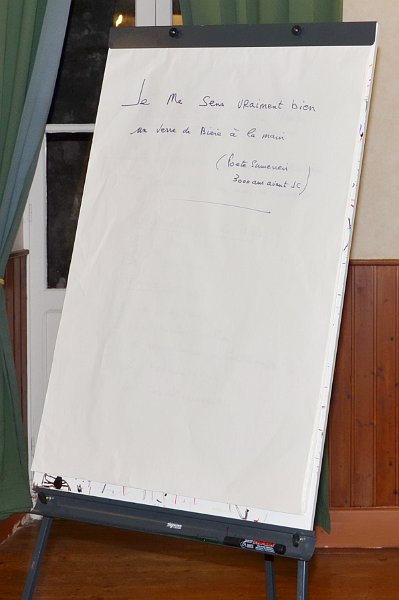 Je Me Sens vraiment bien
un verre de Bière à la main
(Poète Sumerien
3000 ans avant JC)